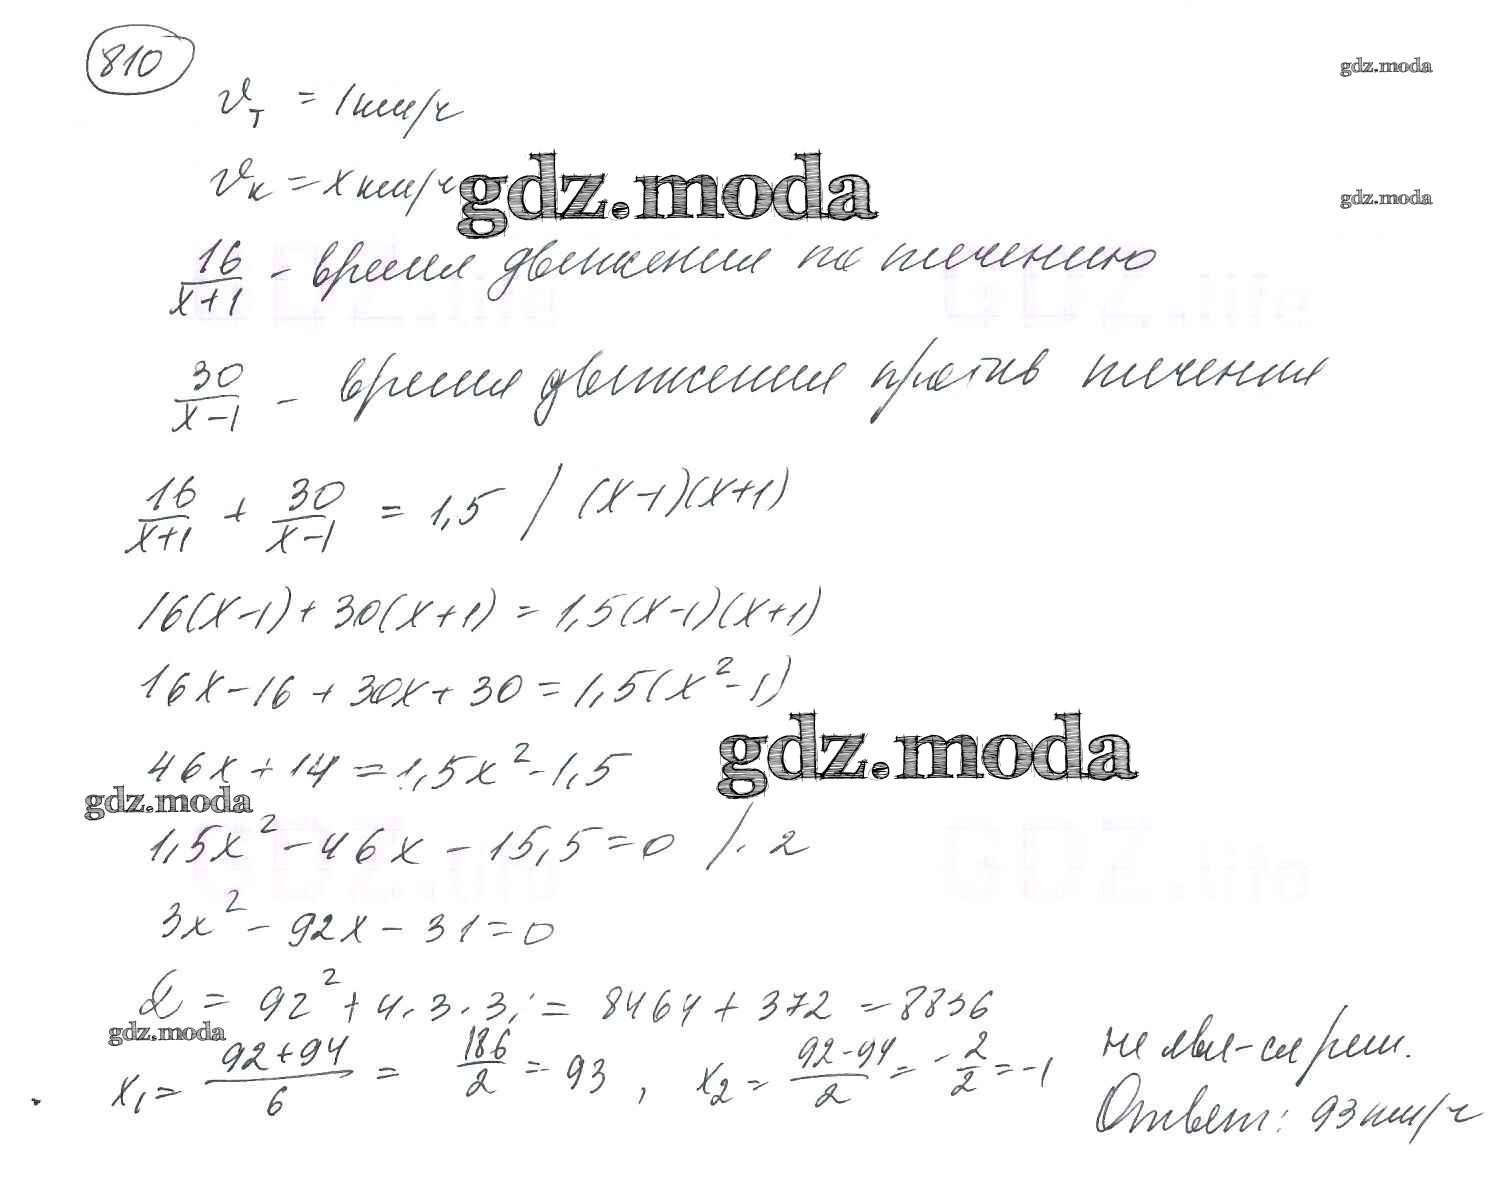 810
gdz.moda
v_т = 1 км/ч
v_к = x км/ч
gdz.moda
gdz.moda
16/(x+1) - время движения по течению
GDZ.life GDZ.life
30/(x-1) - время движения против течения
16/(x+1) + 30/(x-1) = 1,5 / (x-1)(x+1)
16(x-1) + 30(x+1) = 1,5(x-1)(x+1)
16x - 16 + 30x + 30 = 1,5(x² - 1)
gdz.moda
46x + 14 = 1,5x² - 1,5
gdz.moda
1,5x² - 46x - 15,5 = 0 /· 2
GDZ.life GDZ.life
3x² - 92x - 31 = 0
D = 92² + 4·3·31 = 8464 + 372 = 8836
gdz.moda
x₁ = (92+94)/6 = 186/2 = 93, x₂ = (92-94)/2 = -2/2 = -1 не явл-ся реш.
Ответ: 93 км/ч